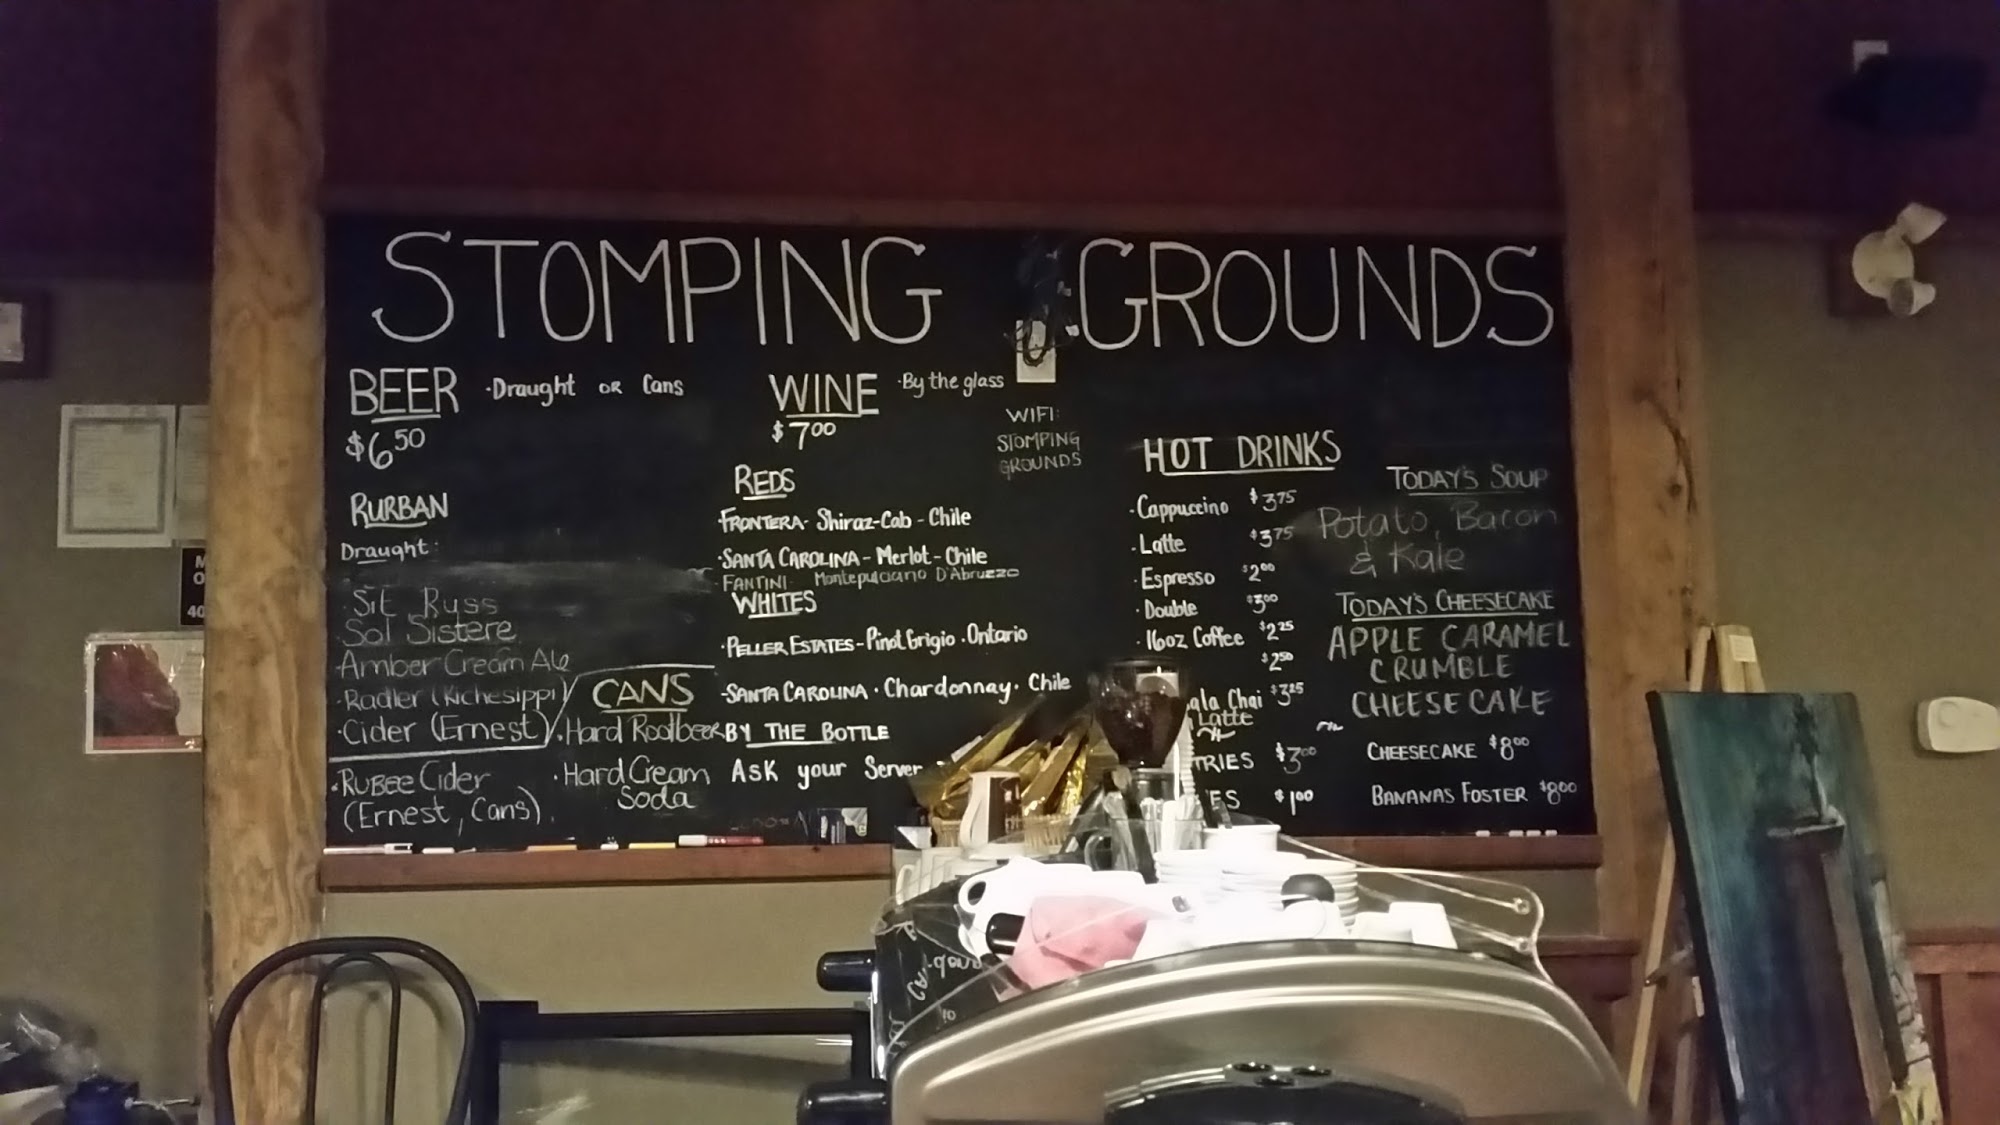 STOMPING GROUNDS
BEER · Draught OR Cans
$6.50
RURBAN
Draught:
· Sit Russ
Sol Sistere
· Amber Cream Ale
· Radler (Kichesippi)
· Cider (Ernest)
· RUBEE Cider
(Ernest, Cans).
CANS
· Hard Rootbeer
· Hard Cream
Soda
WINE · By the glass
$7.00
REDS
· FRONTERA - Shiraz-Cab - Chile
· SANTA CAROLINA - Merlot - Chile
· FANTINI Montepulciano D'Abruzzo
WHITES
· PELLER ESTATES - Pinot Grigio · Ontario
- SANTA CAROLINA · Chardonnay · Chile
BY THE BOTTLE
ASK your Server
WIFI:
STOMPING
GROUNDS
HOT DRINKS
· Cappuccino $3.75
· Latte $3.75
· Espresso $2.00
· Double $3.00
· 16oz Coffee $2.25
$2.50
ala Chai $3.25
Latte
TRIES $3.00
ES $1.00
TODAY'S SOUP
Potato, Bacon
& Kale
TODAY'S CHEESECAKE
APPLE CARAMEL
CRUMBLE
CHEESECAKE
CHEESECAKE $8.00
BANANAS FOSTER $8.00